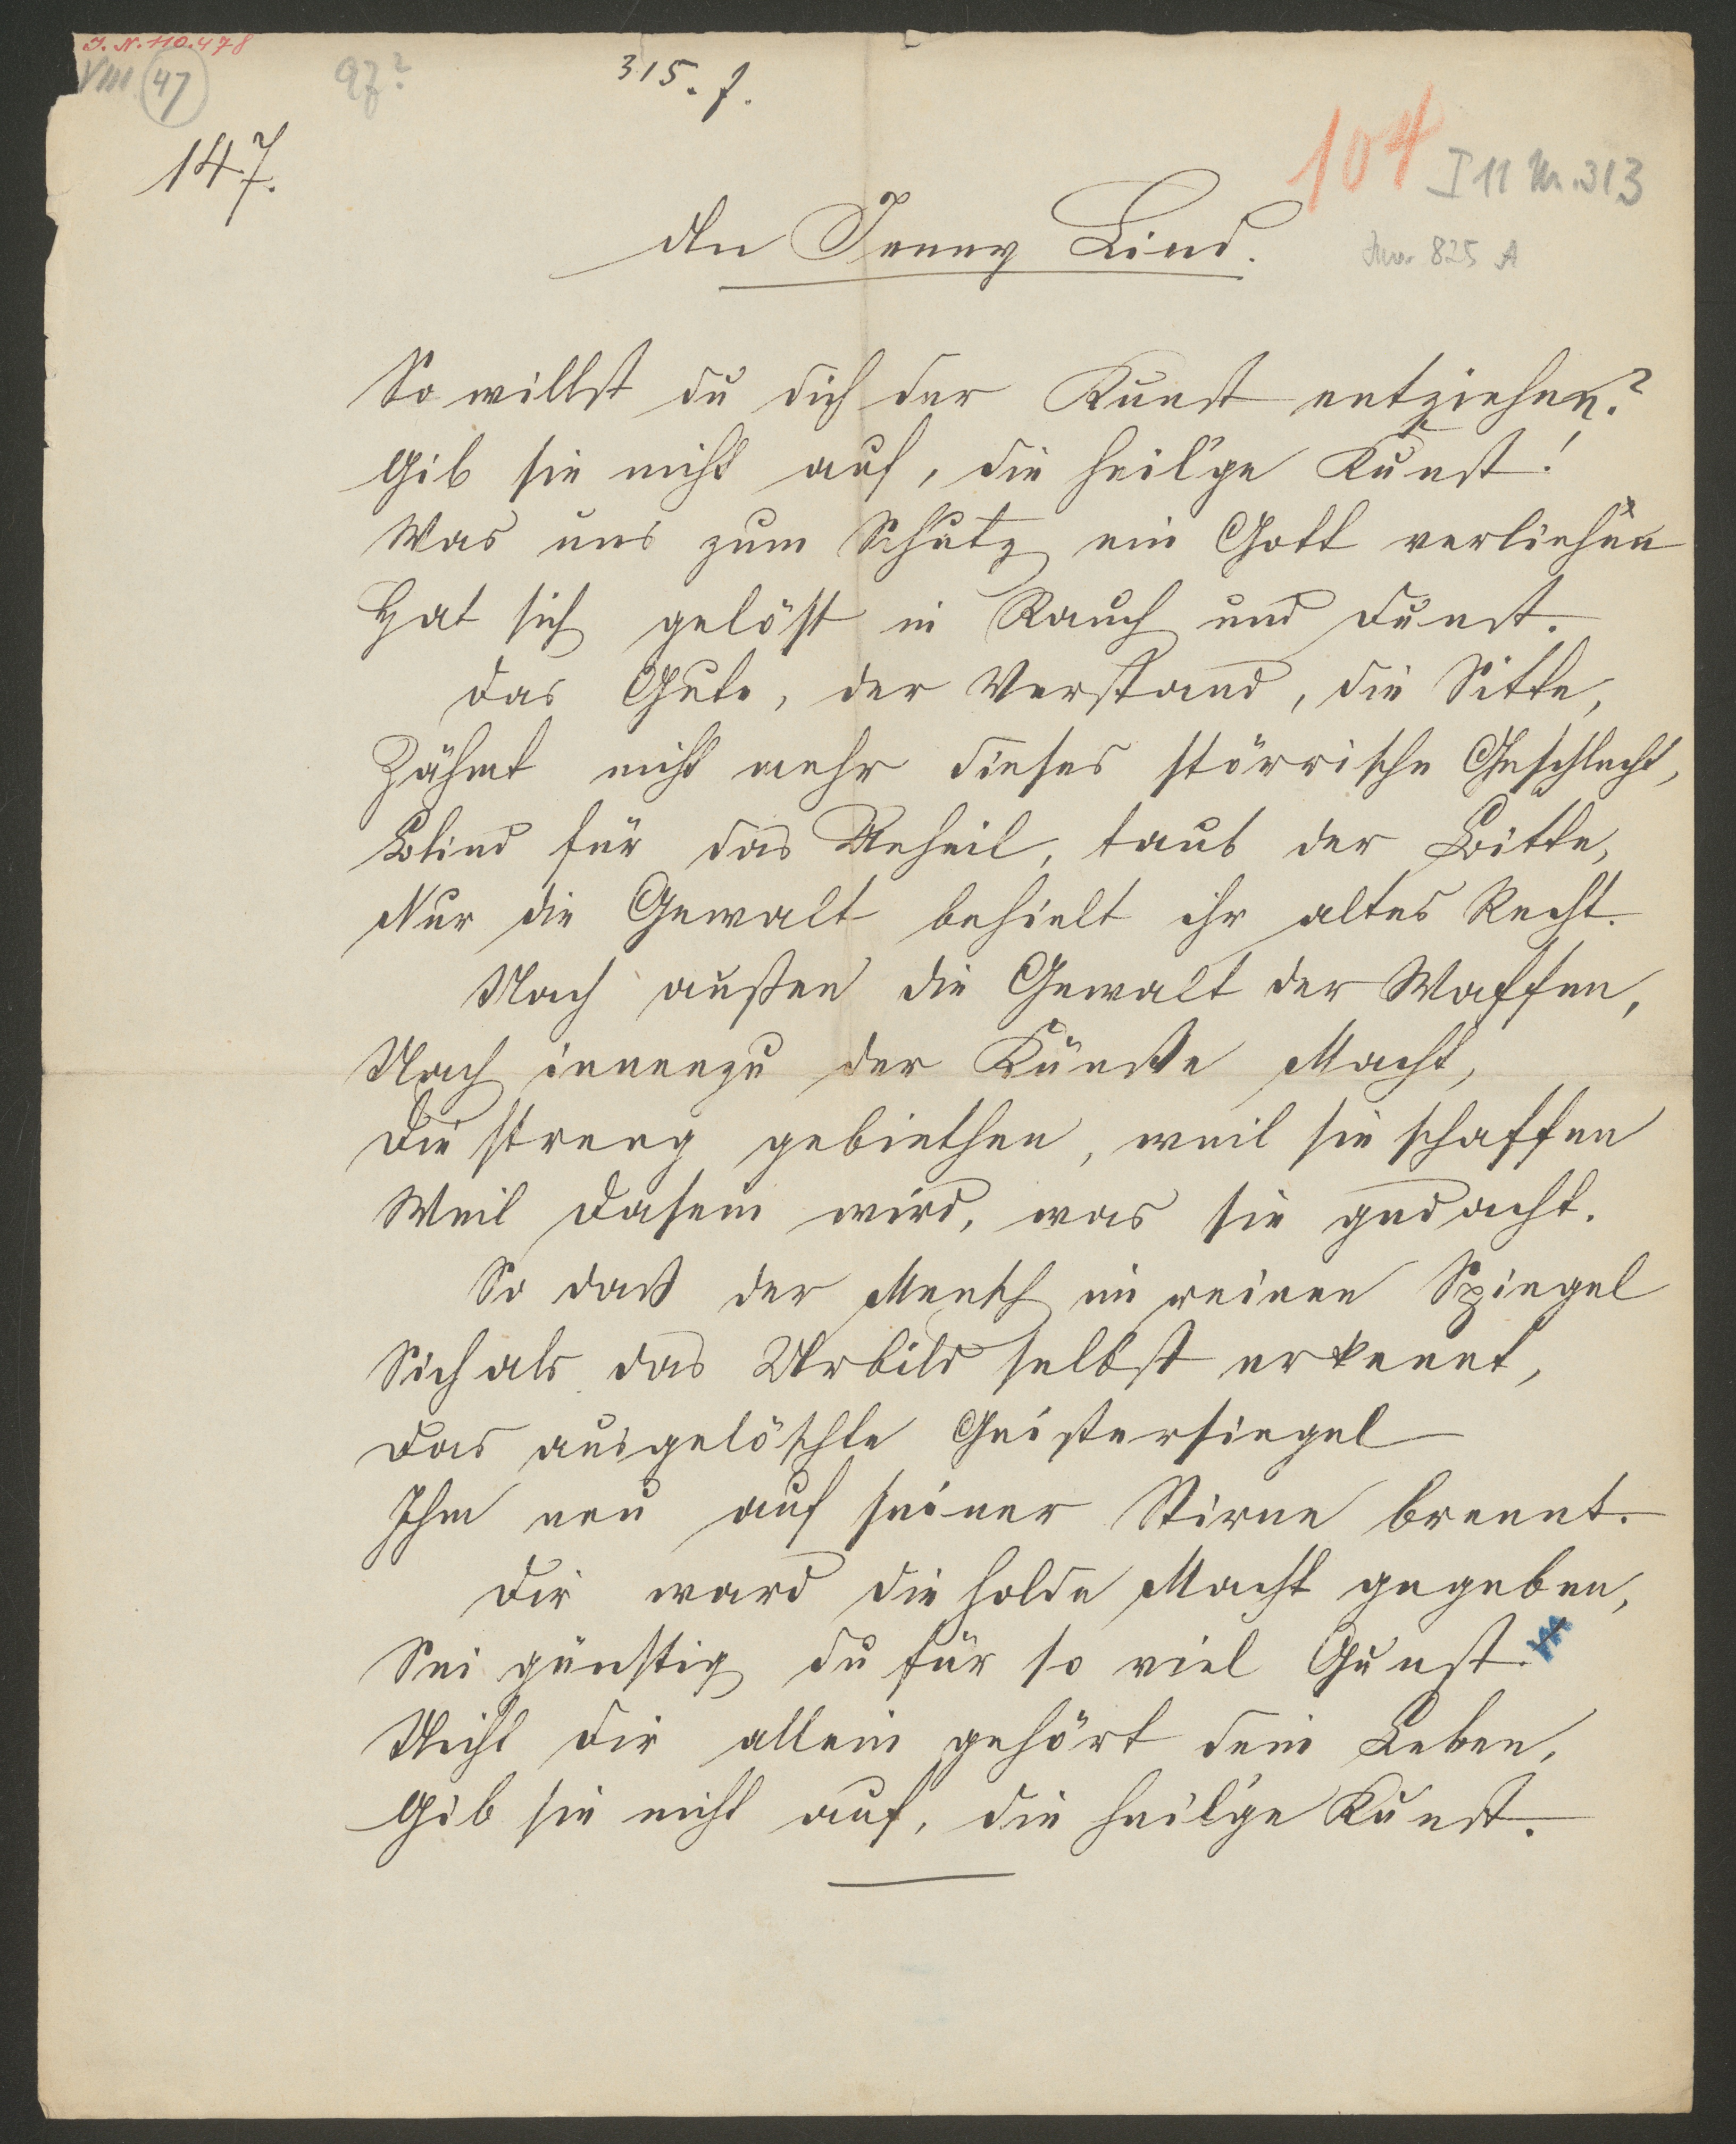 I. N. 110.478
VIII 47
315. f.
104
147.
I 11 Nr. 313
An Jenny Lind.
Inv. 825 A
So willst du dich der Kunst entziehen?
Gib sie nicht auf, die heil'ge Kunst!
Was uns zum Schutz ein Gott verliehen
Hat sich gelöst in Rauch und Dunst.
Das Gute, der Verstand, die Sitte,
Zähmt nicht mehr dieses störrische Geschlecht,
Blind für das Unheil, taub der Bitte,
Nur die Gewalt behielt ihr altes Recht.
Nach außen die Gewalt der Waffen,
Nach innenzu der Künste Macht,
Die streng gebiethen, weil sie schaffen
Weil Dasein wird, was sie gedacht.
So daß der Mensch im reinen Spiegel
Sich als das Urbild selbst erkennt,
Das ausgelöschte Geistersiegel
Ihm neu auf seiner Stirne brennt.
Dir ward die holde Macht gegeben,
Sei günstig du für so viel Gunst.
Nicht dir allein gehört dein Leben,
Gib sie nicht auf, die heil'ge Kunst.